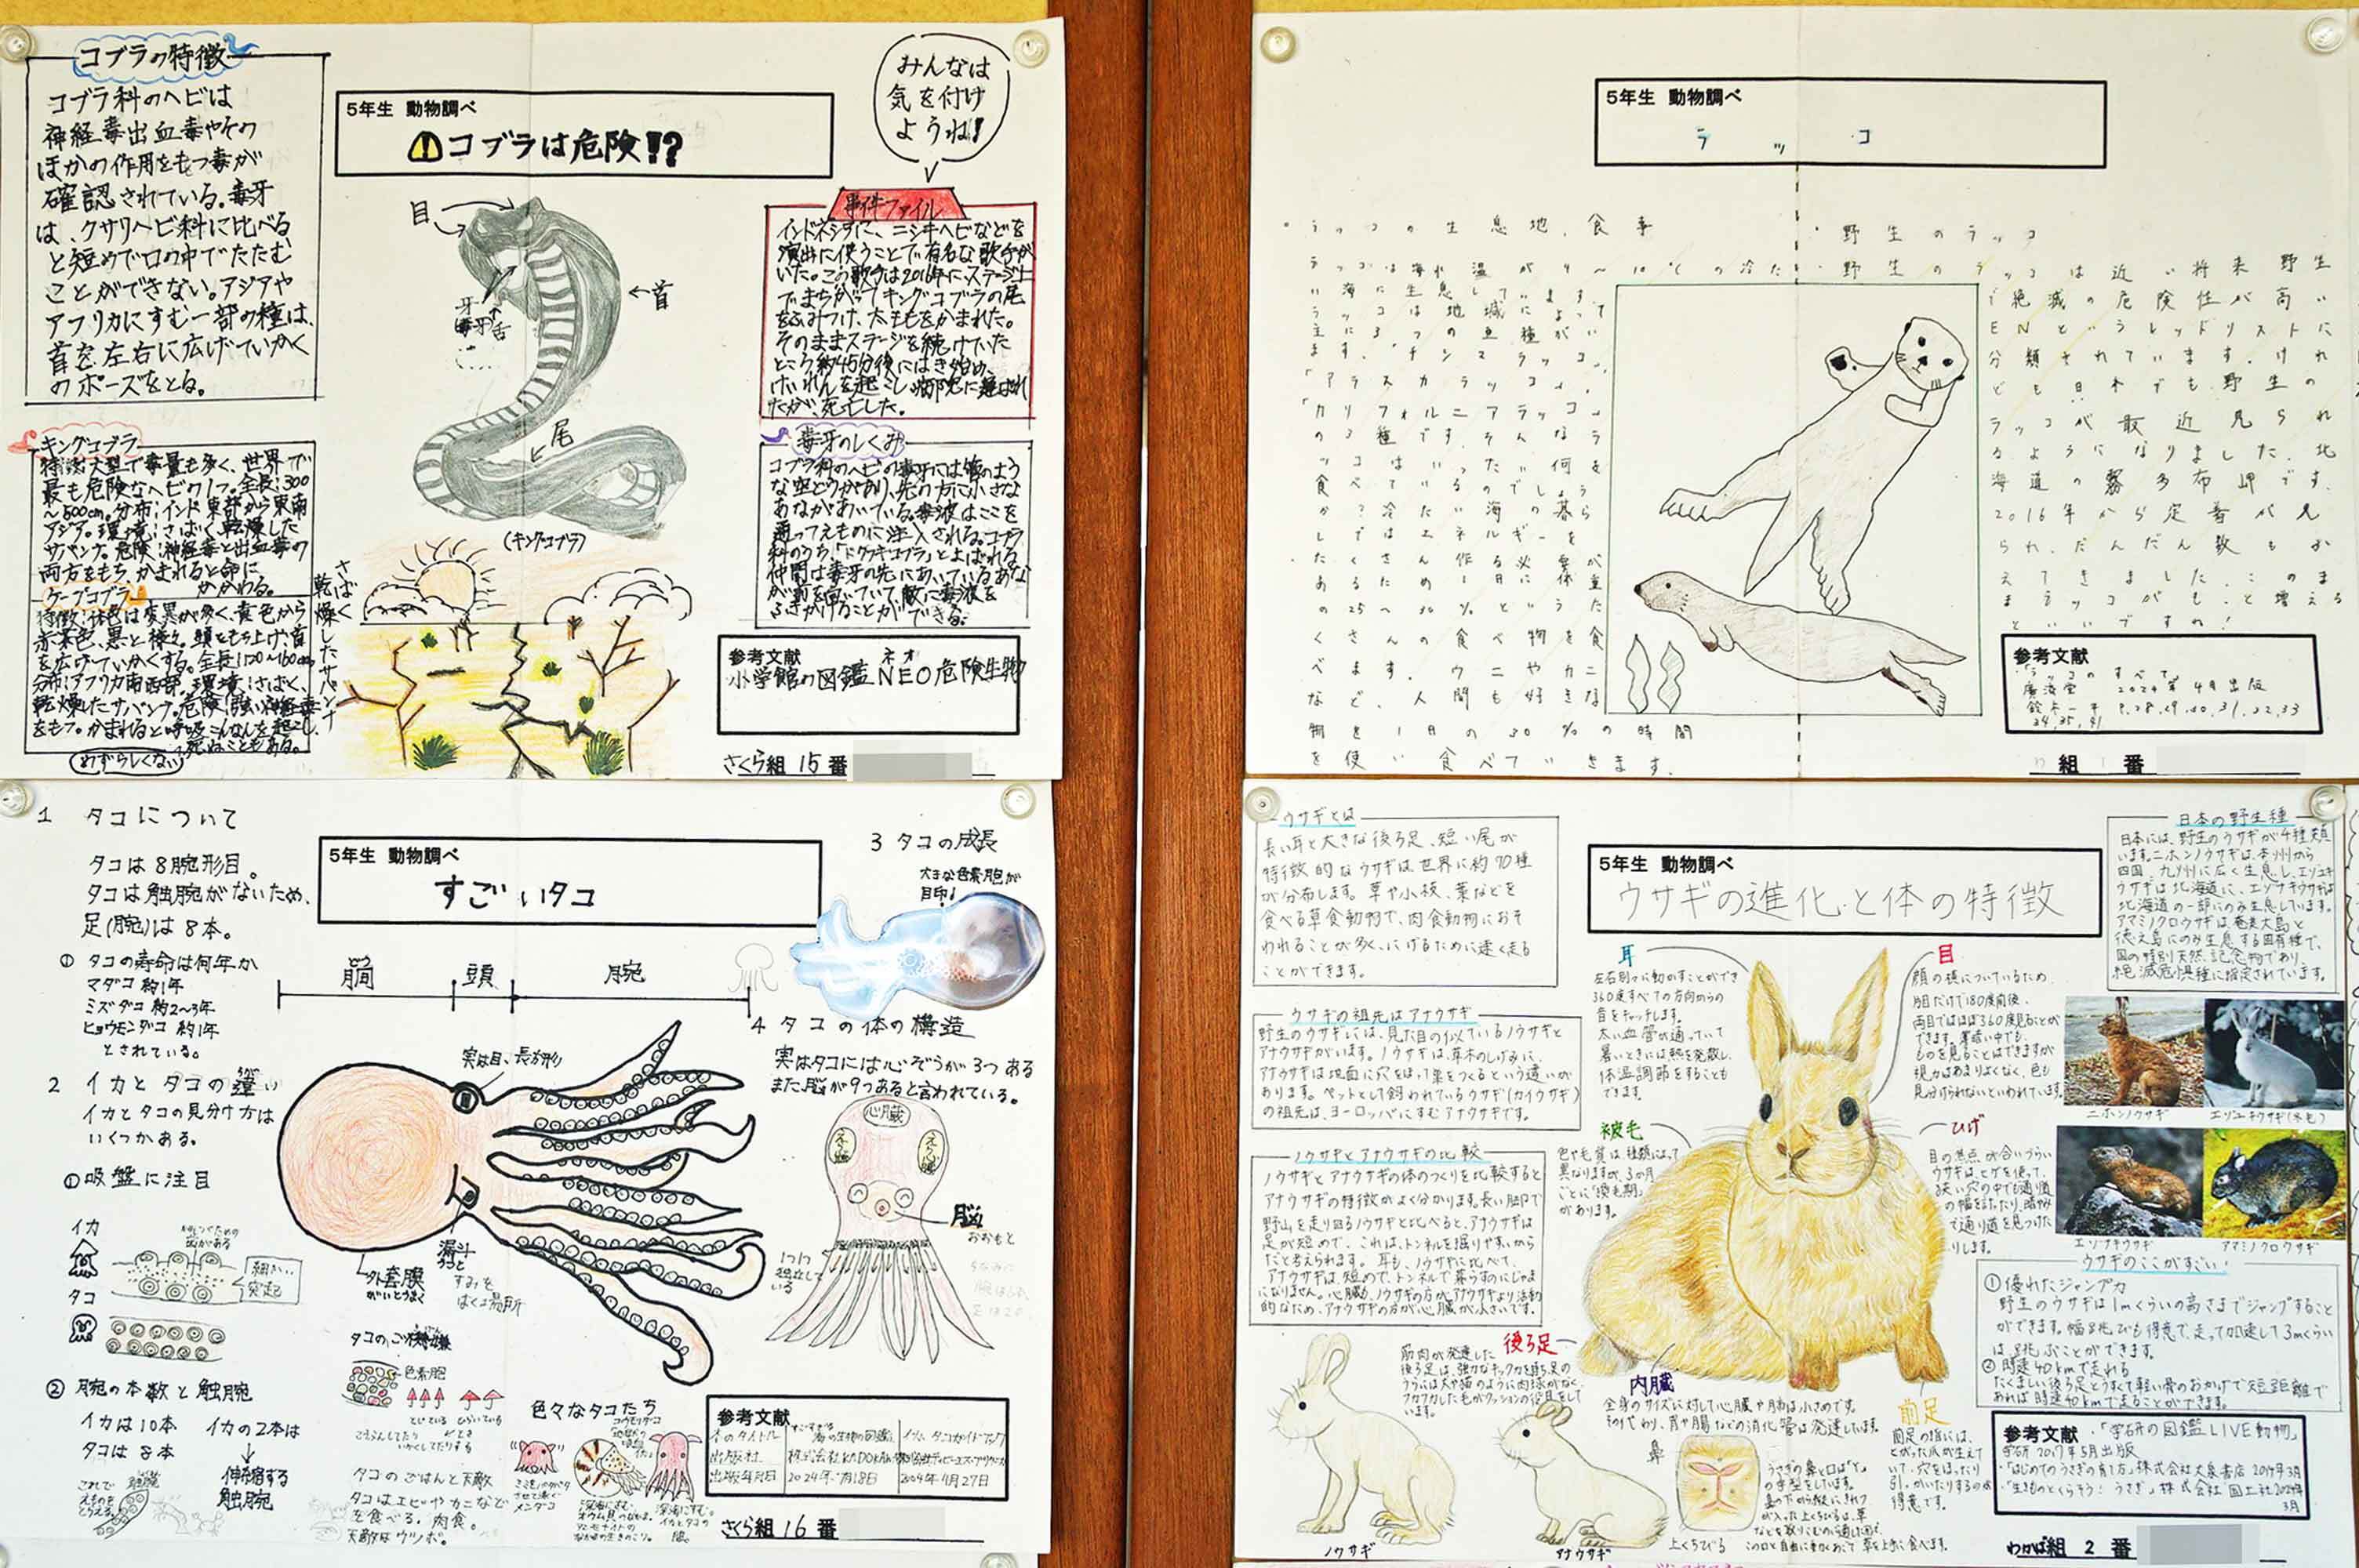 コブラの特徴
コブラ科のヘビは
神経毒出血毒やその
ほかの作用をもつ毒が
確認されている。毒牙
は、クサリヘビ科に比べる
と短めで口の中でたたむ
ことができない。アジアや
アフリカにすむ一部の種は、
首を左右に広げていかく
のポーズをとる。
キングコブラ
特徴:大型で毒量も多く、世界で
最も危険なヘビの1つ。全長:300
~500cm。分布:インド東部から東南
アジア。環境:さばく、乾燥した
サバンナ。危険:神経毒と出血毒の
両方をもち、かまれると命に
かかわる。
ケープコブラ
特徴:体色は変異が多く、黄色から
赤茶色、黒と様々。頭をもち上げ、首
を広げていかくする。全長:120~160cm
分布:アフリカ南西部。環境:さばく、
乾燥したサバンナ。危険:強い神経毒
をもつ。かまれると呼吸こんなんを起こし、
死ぬこともある。
めずらしくない
5年生 動物調べ
コブラは危険!?
みんなは
気を付け
ようね!
目
首
牙
毒牙
舌
尾
(キングコブラ)
さばく
乾燥したサバンナ
事件ファイル
インドネシアに、ニシキヘビなどを
演出に使うことで有名な歌手が
いた。この歌手は2016年に、ステージ上
でまちがってキングコブラの尾
をふみつけ、太ももをかまれた。
そのままステージを続けていた
ところ約45分後にはき始め、
けいれんを起こし病院に運ばれ
たが、死亡した。
毒牙のしくみ
コブラ科のヘビの毒牙には管のよう
な空どうがあり、先の方に小さな
あながあいている。毒液はここを
通ってえものに注入される。コブラ
科のうち、「ドクフキコブラ」とよばれる
仲間は毒牙の先にあいているあな
が前を向いていて、敵に毒液を
ふきかけることができる。
参考文献
小学館の図鑑NEO危険生物
ネオ
さくら組 15番
5年生 動物調べ
ラッコ
・ラッコの生息地、食事
ラッコは海水温が4~10℃の冷た
い海に生息しています。
ラッコは地域によって
主に3つの亜種がい
ます。「チシマラッコ」、
「アラスカラッコ」、
「カリフォルニアラッコ」
の3種です。そんなラ
ッコはいったい何を
食べているのでしょう
か?冷たい海の暮ら
しではエネルギーを
たくさん作る必要が
あるため1日に体重
の25~30%というた
くさんの食べ物を食
べます。ウニやカニ
など、人間も好きな
物を1日の30%の時間
を使い食べていきます。
・野生のラッコ
・野生のラッコは近い将来野生
で絶滅の危険性が高い
ENというレッドリストに
分類されています。けれ
ども日本でも野生の
ラッコが最近見られ
るようになりました。北
海道の霧多布岬です。
2016年から定着が見
られ、だんだん数もふ
えてきました。このま
まラッコがもっと増える
といいですね!
参考文献
ラッコのすべて
廣済堂 2024年4月出版
鈴木一平
組 番
1 タコについて
タコは8腕形目。
タコは触腕がないため、
足(腕)は8本。
① タコの寿命は何年か
マダコ 約1年
ミズダコ 約2~3年
ヒョウモンダコ 約1年
とされている。
2 イカとタコの違い
イカとタコの見分け方は
いくつかある。
①吸盤に注目
イカ
細かい
突起
タコ
② 腕の本数と触腕
イカは10本
タコは8本
イカの2本は
伸縮する
触腕
これで
えものを
とらえる。
触腕
5年生 動物調べ
すごいタコ
胴
頭
腕
実は目、長方形
外套膜
がいとうまく
漏斗
ろうと
すみを
はく場所
色素胞
とじている
ひらいている
タコのごはんと天敵
タコはエビやカニなど
を食べる。肉食。
天敵はウツボ。
色々なタコたち
メンダコ
コウモリダコ
3 タコの成長
大きな色素胞が
目印!
4 タコの体の構造
実はタコには心ぞうが3つある
また脳が9つあると言われている。
心臓
えら心臓
えら心臓
脳
おおもと
1つ1つ
独立して
いる
参考文献
本のタイトル
出版社
出版年月日
2004年4月27日
さくら組 16番
5年生 動物調べ
ウサギの進化と体の特徴
ウサギとは
長い耳と大きな後ろ足、短い尾が
特徴的なウサギは世界に約70種
が分布します。草や小枝、葉などを
食べる草食動物で、肉食動物におそ
われることが多く、にげるために速く走る
ことができます。
ウサギの祖先はアナウサギ
野生のウサギには、見た目の似ているノウサギと
アナウサギがいます。ノウサギは、草木のしげみに、
アナウサギは地面に穴をほって巣をつくるという違いが
あります。ペットとして飼われているウサギ(カイウサギ)
の祖先は、ヨーロッパにすむアナウサギです。
ノウサギとアナウサギの比較
ノウサギとアナウサギの体のつくりを比較すると
アナウサギの特徴がよく分かります。長い脚で
野山を走り回るノウサギと比べると、アナウサギは
足が短めで、これは、トンネルを掘りやすいから
だと考えられます。耳も、ノウサギに比べて、
アナウサギは、短めで、トンネルで暮らすのにじゃま
になりません。心臓も、ノウサギの方がアナウサギより活動
的なため、アナウサギの方が心臓が小さいです。
耳
左右別々に動かすことができ
360度すべての方向からの
音をキャッチします。
太い血管が通っていて
暑いときには熱を発散し、
体温調節をすることも
できます。
目
顔の横についているため
片目だけで180度前後、
両目ではほぼ360度見ることが
できます。薄暗い中でも、
ものを見ることはできますが
視力はあまりよくなく、色も
見分けられないといわれています。
被毛
色や毛質は種類によって
異なりますが、3か月
ごとに「換毛期」
があります。
ひげ
目の焦点が合いづらい
ウサギは、ヒゲを使って、
狭い穴の中でも通り道
の幅をはかったり、暗やみ
で通り道を見つけた
りします。
後ろ足
筋肉が発達した
後ろ足は、強力なキック力を持ち、足の
うらには犬や猫のように肉球がなく、
フカフカした毛がクッションの役目をして
います。
内臓
全身のサイズに対して心臓や肺は小さめです。
その代わり、胃や腸などの消化管は発達しています。
前足
前足の指には、
とがった爪が生えて
いて、穴をほったり
引っかいたりするのが
得意です。
鼻
うさぎの鼻と口は「Y」
の字型をしています。
上くちびる
ノウサギ
アナウサギ
日本の野生種
日本には、野生のウサギが4種類
います。ニホンノウサギは、本州から
四国、九州に広く生息し、エゾユキ
ウサギは北海道に、エゾナキウサギは
北海道の一部にのみ生息しています。
アマミノクロウサギは、奄美大島と
徳之島にのみ生息する固有種で、
国の特別天然記念物であり、
絶滅危惧種に指定されています。
ニホンノウサギ
エゾユキウサギ(冬毛)
エゾナキウサギ
アマミノクロウサギ
ウサギのここがすごい!
①優れたジャンプ力
野生のウサギは1mくらいの高さまでジャンプすること
ができます。幅跳びも得意で、走って加速して3mくらい
は跳ぶことができます。
②時速40kmで走れる
たくましい後ろ足とうすくて軽い骨のおかげで短距離で
あれば時速40kmで走ることができます。
参考文献 ・「学研の図鑑LIVE動物」
学研 2017年5月出版
・「はじめてのうさぎの育て方」株式会社大泉書店 2014年3月
・「生きものとくらそう!うさぎ」株式会社国土社
3月
わかば組 2番